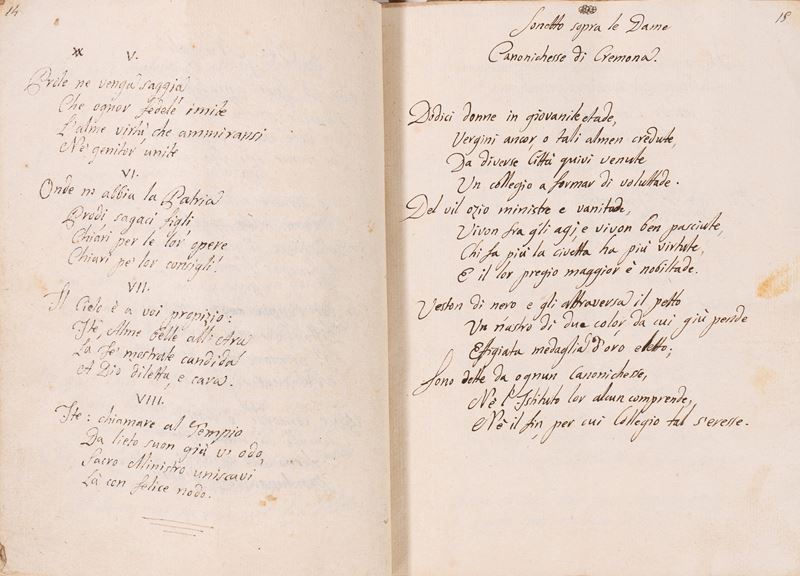 14
V.
Prole ne venga saggia
Che ognor fedele imite
L'alme virtù che ammiransi
Nè genitor unite
VI.
Onde n'abbia la Patria
Prodi sagaci figli
Chiari per le lor opere
Chiari pe' lor consigli.
VII.
Il Cielo è a voi propizio:
Ite, Alme belle all'Ara
La Fe' mostrate candida
A Dio diletta, e cara.
VIII.
Ite: chiamare al Tempio
Da lieto suon già vi odo,
Sacro Ministro uniscavi
Là con felice nodo.
15
Sonetto sopra le Dame
Canonichesse di Cremona.
Dodici donne in giovanile etade,
Vergini ancor, o tali almen credute,
Da diverse Città quivi venute
Un collegio a formar di voluttade.
Del vil ozio ministre e vanitade,
Vivon fra gli agj e vivon ben pasciute,
Chi fa più la civetta ha più virtute,
E il lor pregio maggior è nobiltade.
Veston di nero e gli attraversa il petto
Un nastro di due color da cui giù pende
Effigiata medaglia d'oro eletto;
Sono dette da ognun Canonichesse,
Nè l'Istituto lor alcun comprende,
Nè il fin per cui Collegio tal s'eresse.